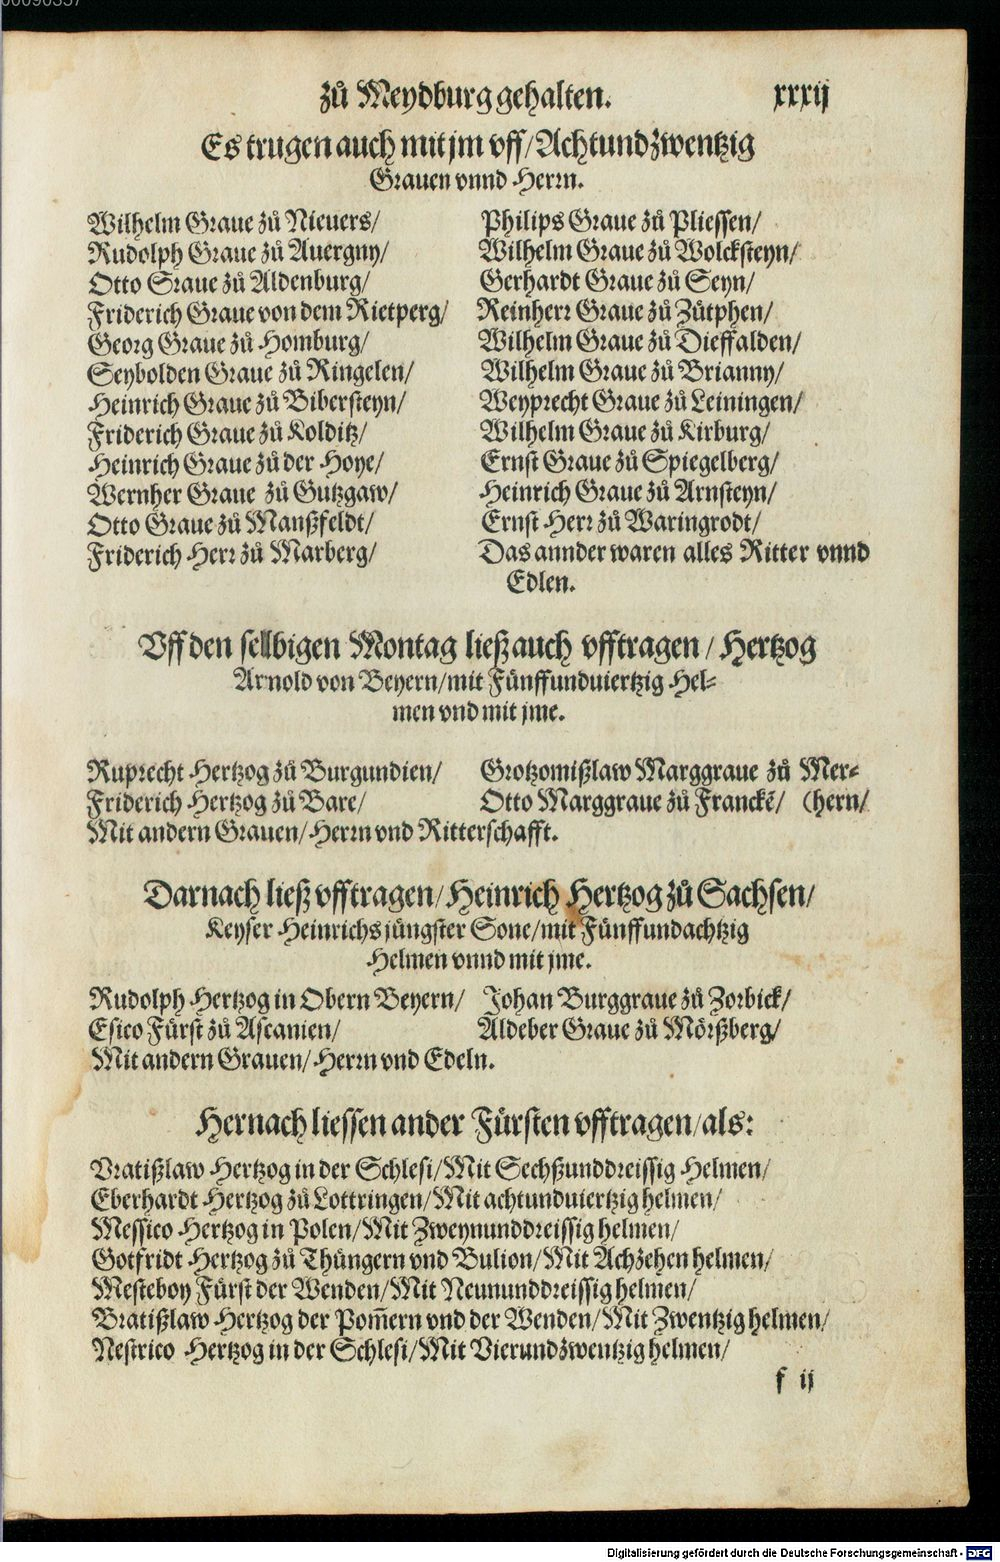 zů Meydburg gehalten. xxxij
Es trugen auch mit jm vff/ Achtundzwentzig
Grauen vnnd Herrn.
Wilhelm Graue zů Nieuers/
Rudolph Graue zů Auergny/
Otto Graue zů Aldenburg/
Friderich Graue von dem Rietperg/
Georg Graue zů Homburg/
Seybolden Graue zů Ringelen/
Heinrich Graue zů Bibersteyn/
Friderich Graue zů Kolditz/
Heinrich Graue zů der Hoye/
Wernher Graue zů Gutzgaw/
Otto Graue zů Manßfeldt/
Friderich Herr zů Marberg/
Philips Graue zů Pliessen/
Wilhelm Graue zů Wolcksteyn/
Gerhardt Graue zů Seyn/
Reinherr Graue zů Zütphen/
Wilhelm Graue zů Dieffalden/
Wilhelm Graue zů Brianny/
Weyprecht Graue zů Leiningen/
Wilhelm Graue zů Kirburg/
Ernst Graue zů Spiegelberg/
Heinrich Graue zů Arnsteyn/
Ernst Herr zů Waringrodt/
Das annder waren alles Ritter vnnd
Edlen.
Vff den selbigen Montag ließ auch vfftragen / Hertzog
Arnold von Beyern/ mit Fünffunduiertzig Hel-
men vnd mit jme.
Ruprecht Hertzog zů Burgundien/
Friderich Hertzog zů Bare/
Grotzomißlaw Marggraue zů Mer-
Otto Marggraue zů Franckē/ (hern/
Mit andern Grauen/ Herrn vnd Ritterschafft.
Darnach ließ vfftragen/ Heinrich Hertzog zů Sachsen/
Keyser Heinrichs jüngster Sone/ mit Fünffundachtzig
Helmen vnnd mit jme.
Rudolph Hertzog in Obern Beyern/
Esico Fürst zů Ascanien/
Johan Burggraue zů Zorbick/
Aldeber Graue zů Mörßberg/
Mit andern Grauen/ Herrn vnd Edeln.
Hernach liessen ander Fürsten vfftragen/ als:
Vratißlaw Hertzog in der Schlesi/ Mit Sechßunddreissig Helmen/
Eberhardt Hertzog zů Lottringen/ Mit achtunduiertzig helmen/
Messico Hertzog in Polen/ Mit Zweynunddreissig helmen/
Gotfridt Hertzog zů Thüngern vnd Bulion/ Mit Achzehen helmen/
Mesteboy Fürst der Wenden/ Mit Neununddreissig helmen/
Bratißlaw Hertzog der Pom̄ern vnd der Wenden/ Mit Zwentzig helmen/
Nestrico Hertzog in der Schlesi/ Mit Vierundzwentzig helmen/
f ij
Digitalisierung gefördert durch die Deutsche Forschungsgemeinschaft - DFG